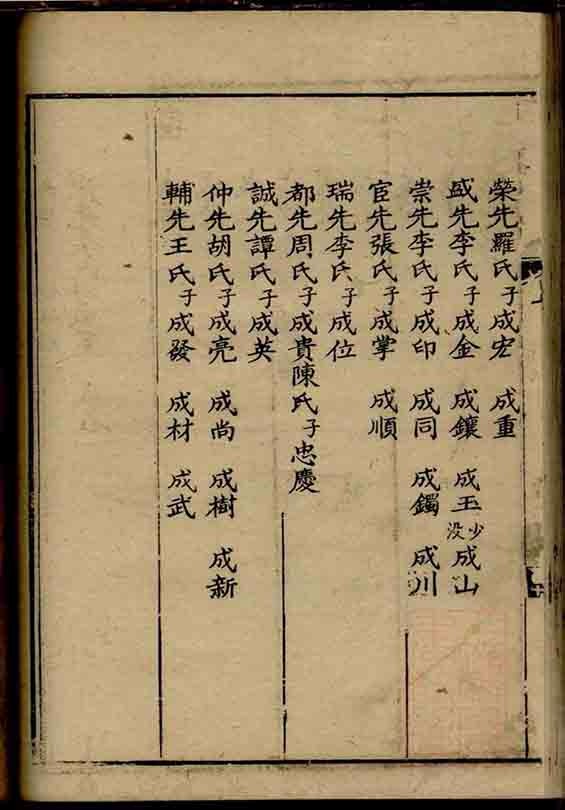 榮先羅氏子成宏 成重
盛先李氏子成金 成鑲 成玉少没 成山
崇先李氏子成印 成同 成鐲 成川
宦先張氏子成掌 成順
瑞先李氏子成位
都先周氏子成貴陳氏子忠慶
誠先譚氏子成英
仲先胡氏子成亮 成尚 成樹 成新
輔先王氏子成發 成材 成武